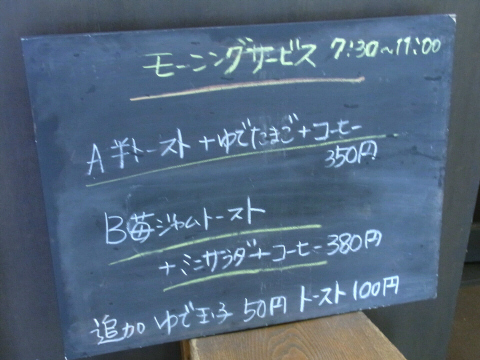 モーニングサービス 7:30~11:00
A 半トースト+ゆでたまご+コーヒー
350円
B 苺ジャムトースト
+ミニサラダ+コーヒー 380円
追加 ゆで玉子 50円 トースト100円